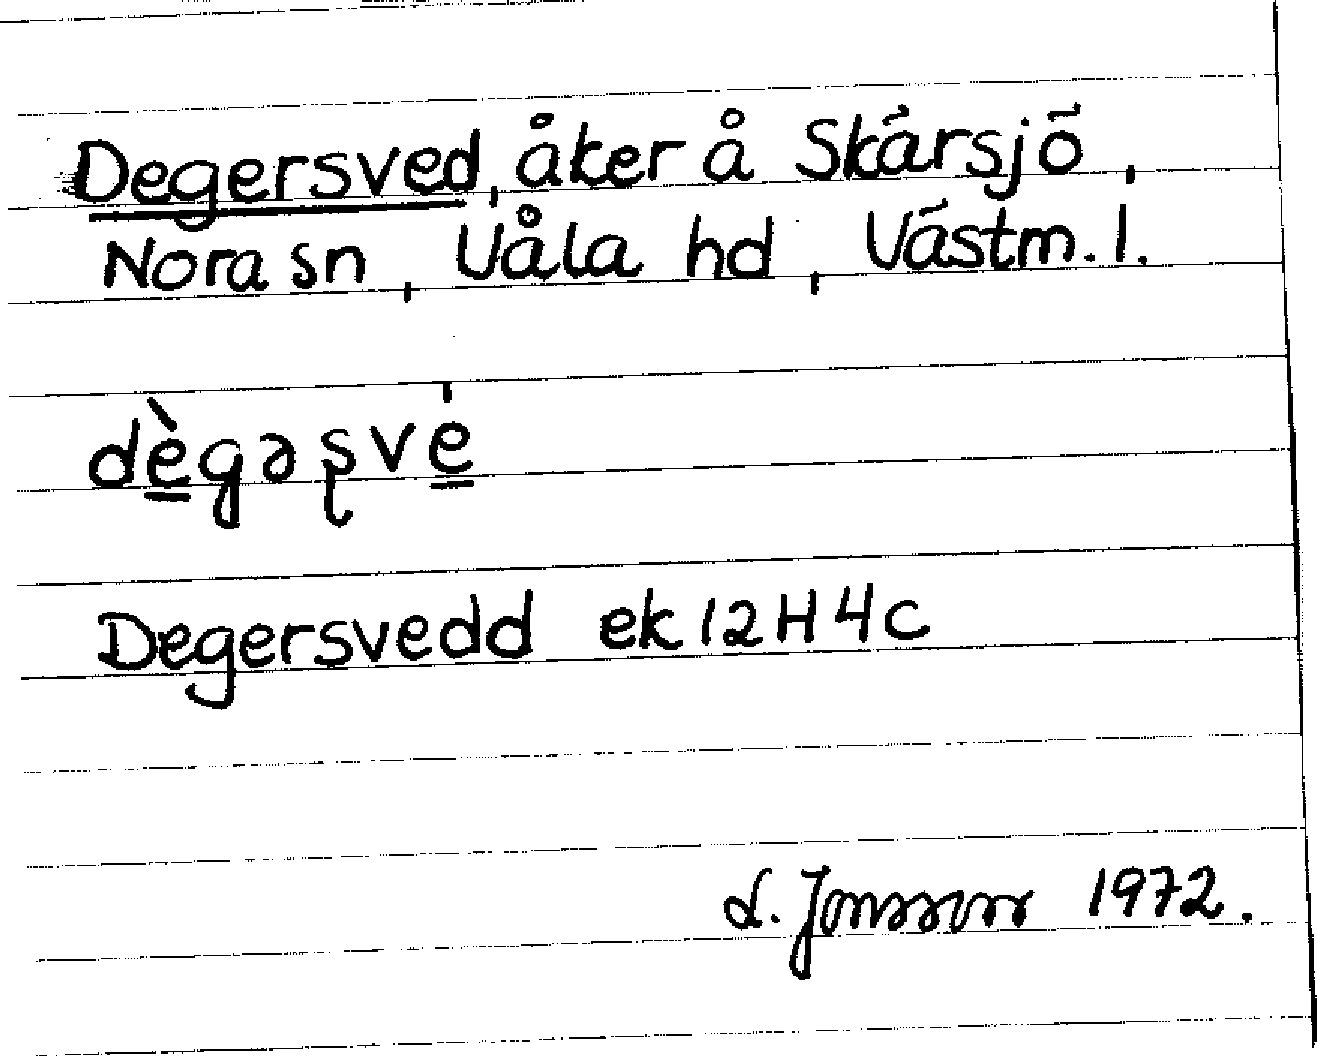 Degersved, åker å Skärsjö,
Nora sn, Våla hd, Västm. l.
dègəʂvé
Degersvedd ek 12H4c
d. Jonsson 1972.